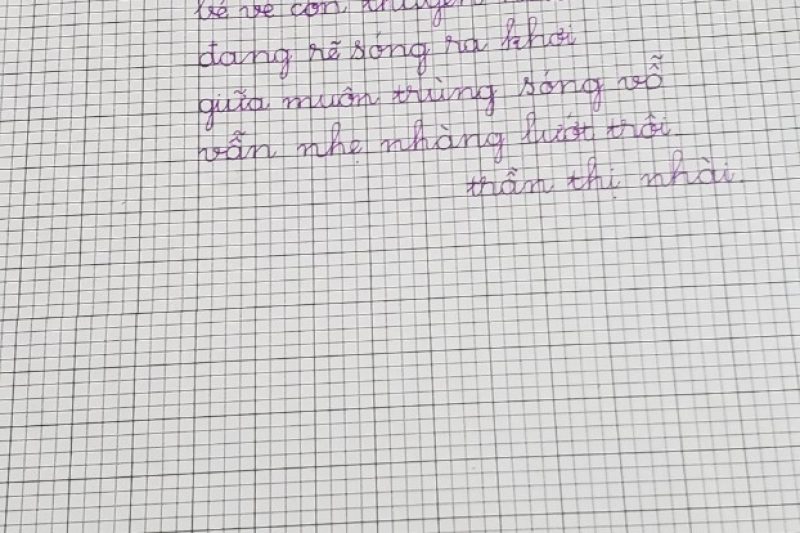 bé vẽ con thuyền
đang rẽ sóng ra khơi
giữa muôn trùng sóng vỗ
vẫn nhẹ nhàng lướt trôi
trần thị nhài.